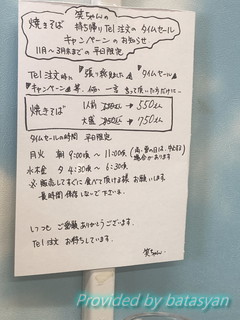 焼きそば 笑ちゃんの
持ち帰り Tel 注文の タイムセール
キャンペーンのお知らせ
11月〜3月末までの 平日限定
Tel 注文時に
タイムセール
キャンペーン 一言 言って頂いた方だけに
焼きそば
1人前 → 550円
大盛 → 750円
タイムセールの時間 平日限定
月火 朝 9:00頃 〜 11:00頃
場合があります
水木金 夕 4:30頃 〜 6:30頃
※ 販売してすぐに食べて頂ける様 お願いします
長時間 保存しないで下さい。
いつも ご愛顧ありがとうございます。
Tel 注文 お待ちしています。
笑ちゃん
Provided by batasyan